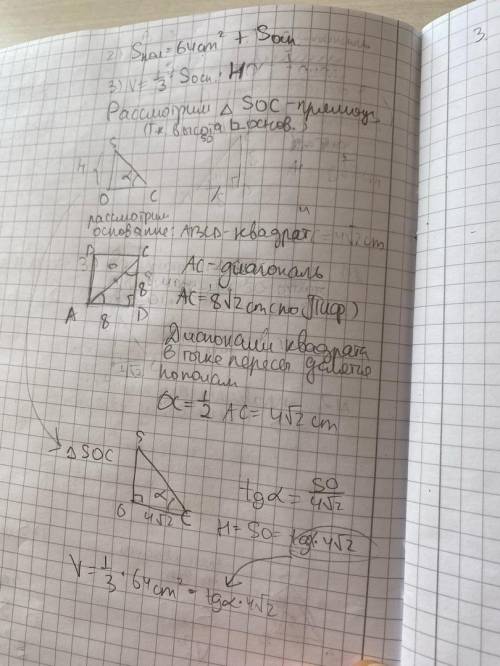 2) Sпол = 64 cm² + Sосн
3) V = 1/3 Sосн · H
Рассмотрим △ SOC - прямоуг
(т.к. высота SO ⊥ основ.)
S
h
α
O C
рассмотрим
основание: ABCD - квадрат
B C
O
8
A 8 D
AC - диагональ
AC = 8√2 cm (по Пиф)
Диагонали квадрата
в точке пересеч делятся
пополам
OC = 1/2 AC = 4√2 cm
△ SOC
S
α
O 4√2 C
tgα = SO/4√2
H = SO = tgα · 4√2
V = 1/3 · 64 cm² · tgα · 4√2
3.